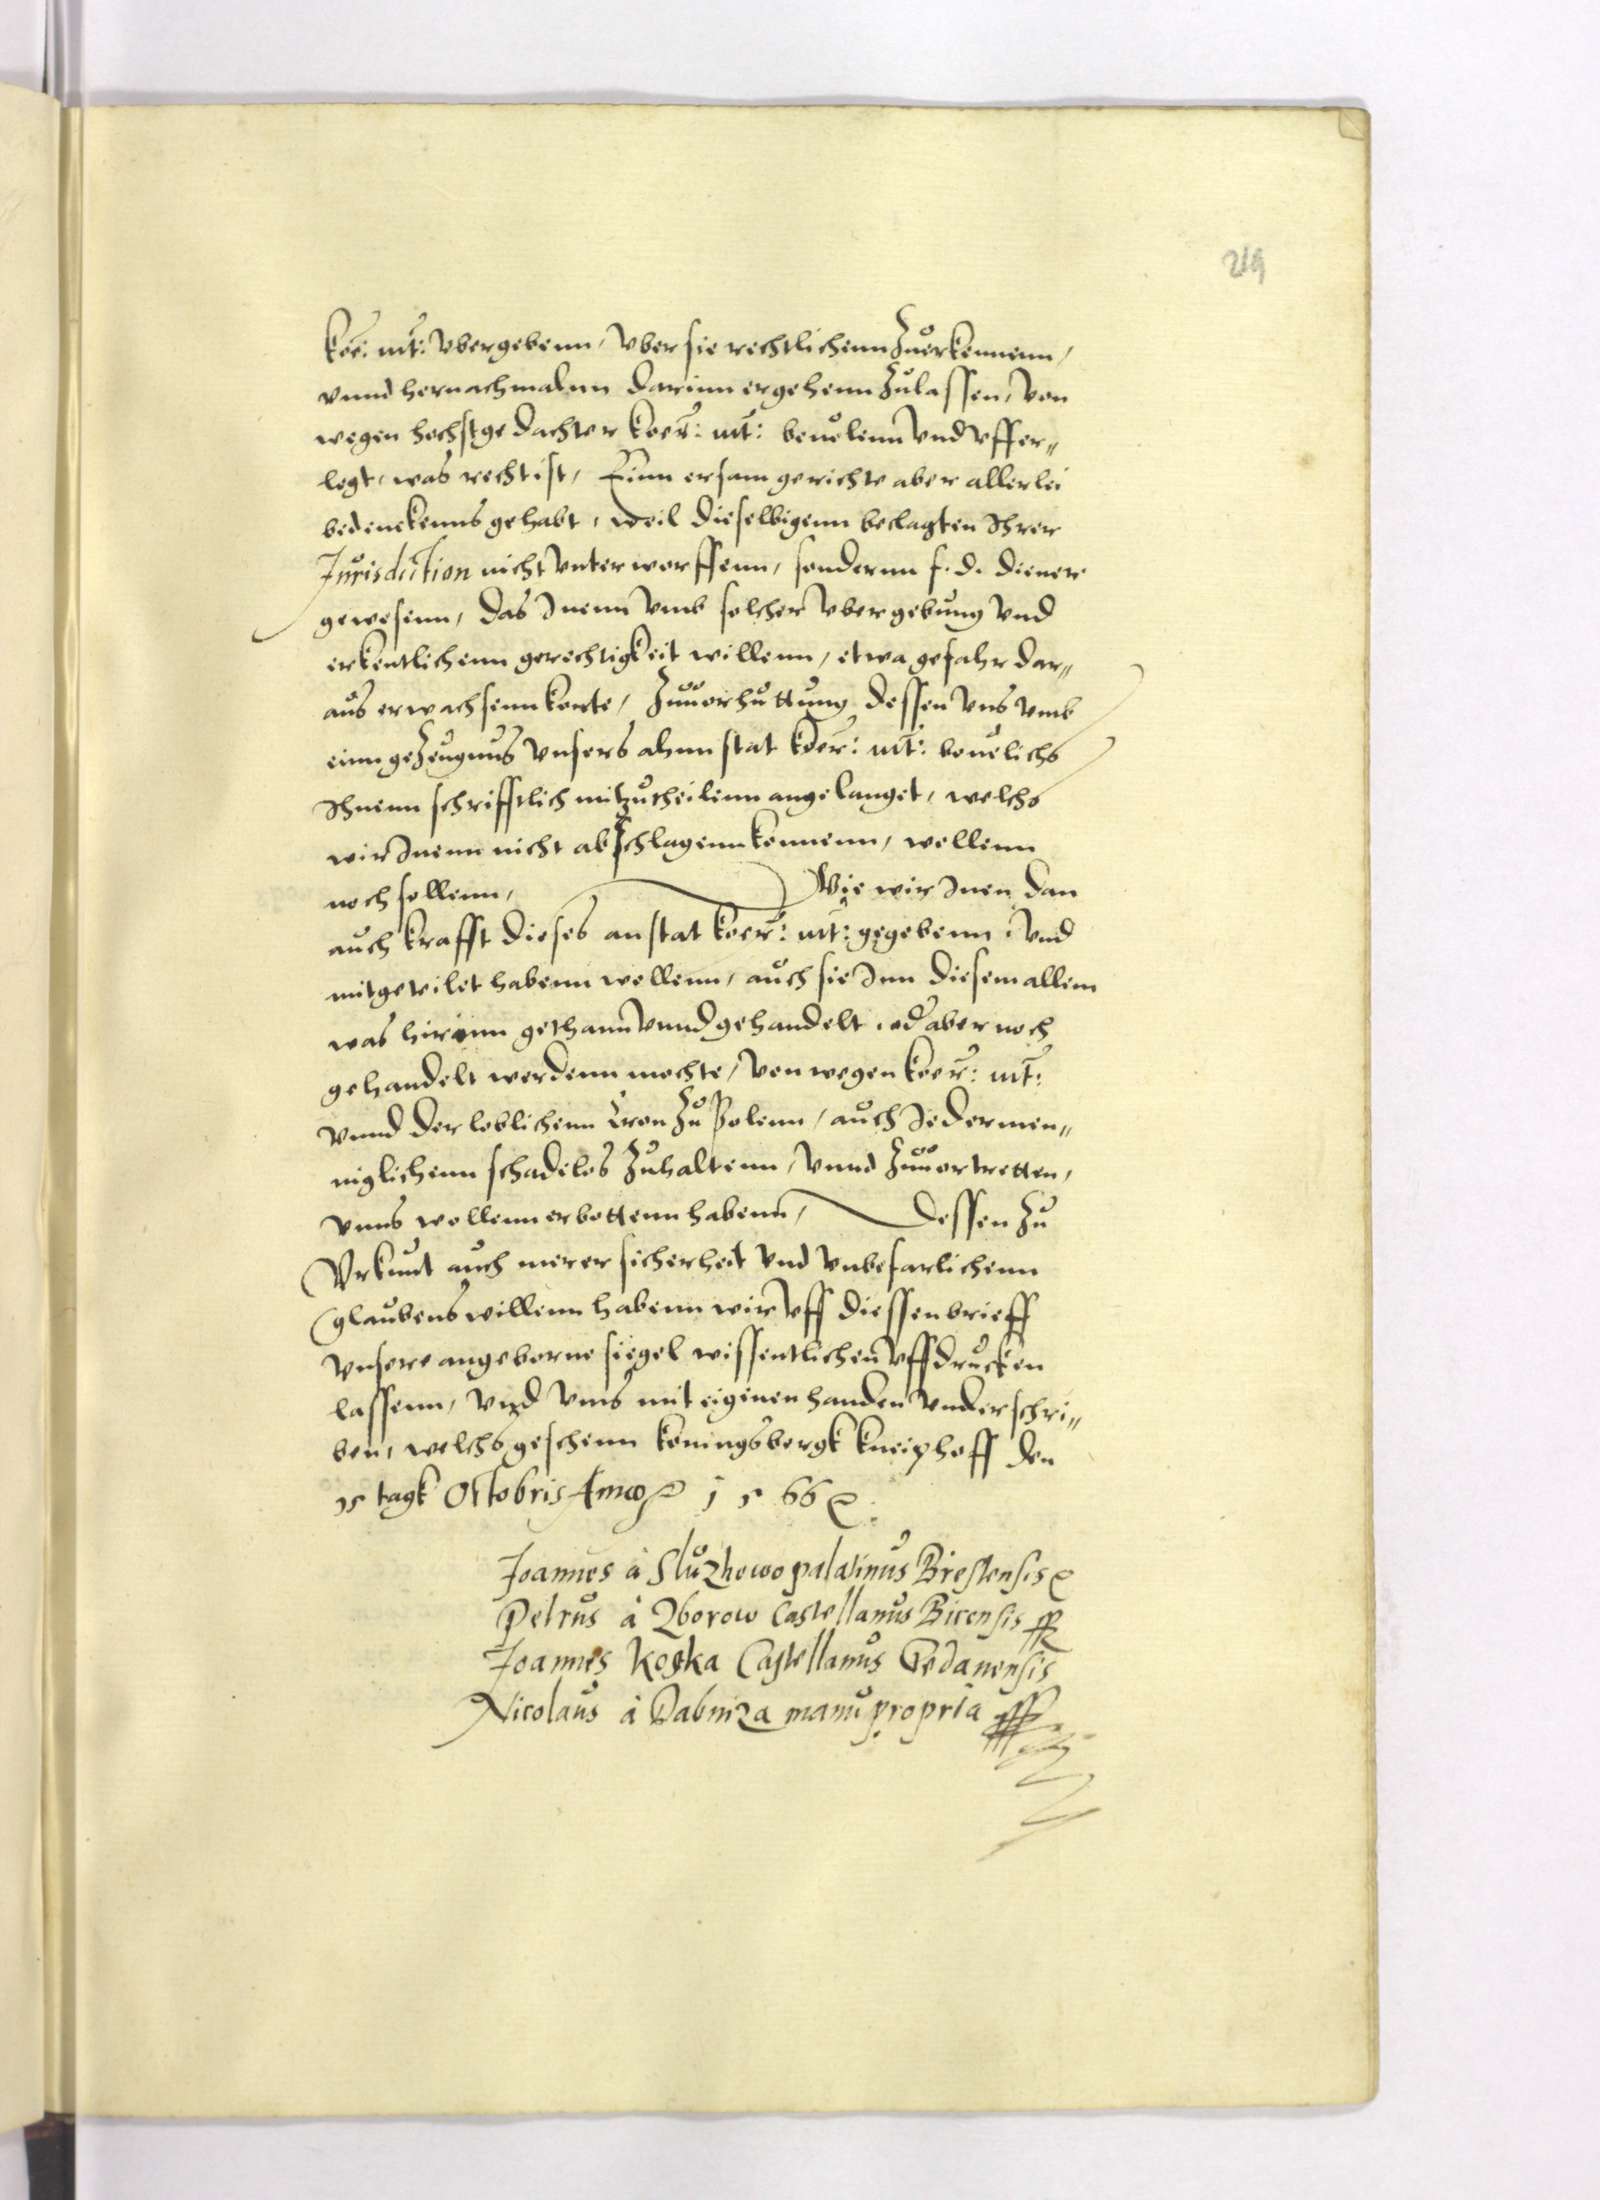 219
koe: mt: vbergebenn, vber sie rechtlichenn Zuerkennenn,
vnnd hernachmalnn darinn ergehenn Zulassen, von
wegen hochstgedachter koer: mt: beuelenn vnd vffer„
legt, was recht ist, Einn ersam gerichte aber allerlei
bedenckenns gehabt, weil dieselbigenn beclagten Ihrer
Jurisdiction nicht vnterworffenn, sondernn f. d. diener
gewesenn, das Inenn vmb solcher vbergebung vnd
erkentlichenn gerechtigkeit willenn, etwa gefahr dar„
aus erwachsenn konte, Zuuorhuttung dessen vns vmb
einn geZeugnus vnsers ahnn stat koer: mt: beuelichs
Ihnenn schrifftlich mitzutheilenn angelanget, welchs
wir Inenn nicht abschlagenn kennenn, wellenn
noch sollenn, Wie wir Inen dan
auch krafft dieses an stat koer: mt: gegebenn vnd
mitgeteilet habenn wellenn, auch sie Inn diesem allem
was hirinn gethann vnnd gehandelt, od aber noch
gehandelt werdenn mochte, von wegen koer: mt:
vnnd der loblichenn Cron Zu Polenn, auch Iedermen„
niglichenn schadelos Zuhaltenn, vnnd Zuuortretten,
vnns wollenn erbottenn habenn, Dessen Zu
Vrkunt auch merer sicherheit vnd vnbefarlichenn
glaubens willenn habenn wir vff diessen brieff
vnsere angeborne siegel wissentlichen vffdrucken
lassenn, vnd vnns mit eigenen handen vnderschri„
ben, welchs geschenn koningsbergk kneiphoff den
15 tagk Octobris Anno 1566
Joannes à Sluzhewo palatinus Brestensis
Petrus à Zborow Castellanus Bicensis
Joannes Koska Castellanus Gedanensis
Nicolaus à Dabniza manu propria